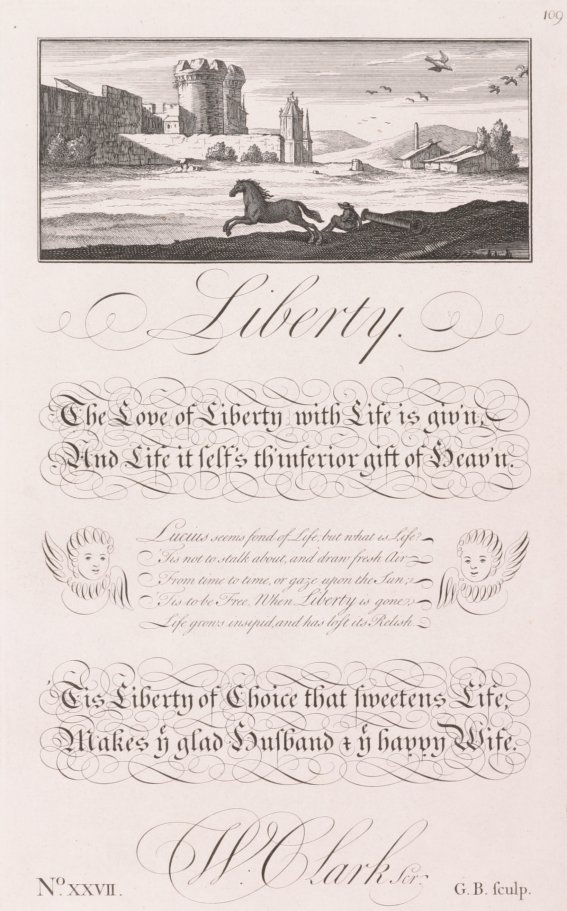 109
Liberty.
The Love of Liberty with Life is giv'n,
And Life it ſelf's th'inferior gift of Heav'n.
Lucius seems fond of Life, but what is Life?
'Tis not to stalk about, and draw fresh Air
From time to time, or gaze upon the Sun;
'Tis to be Free. When Liberty is gone,
Life grows insipid, and has loſt its Relish.
'Tis Liberty of Choice that ſweetens Life,
Makes ẏ glad Huſband & ẏ happy Wife.
W. Clark Scr.
No. XXVII.
G. B. ſculp.